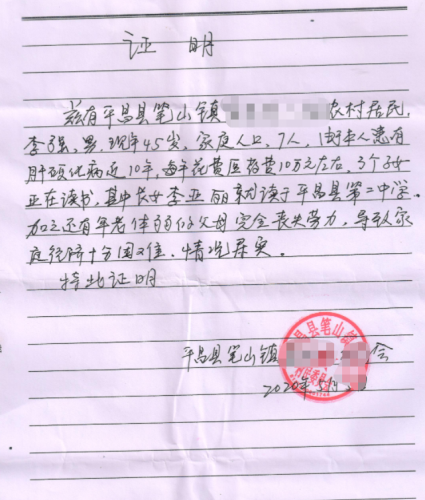 证 明
兹有平昌县笔山镇 农村居民,
李强,男,现年45岁,家庭人口,7人,由本人患有
肝硬化病近10年,每年花费医药费10万元左右,3个子女
正在读书,其中长女李亚丽就读于平昌县第二中学,
加之还有年老体弱的父母完全丧失劳力,导致家
庭经济十分困难,情况属实。
特此证明
平昌县笔山镇 会
2020年5月
昌县笔山镇